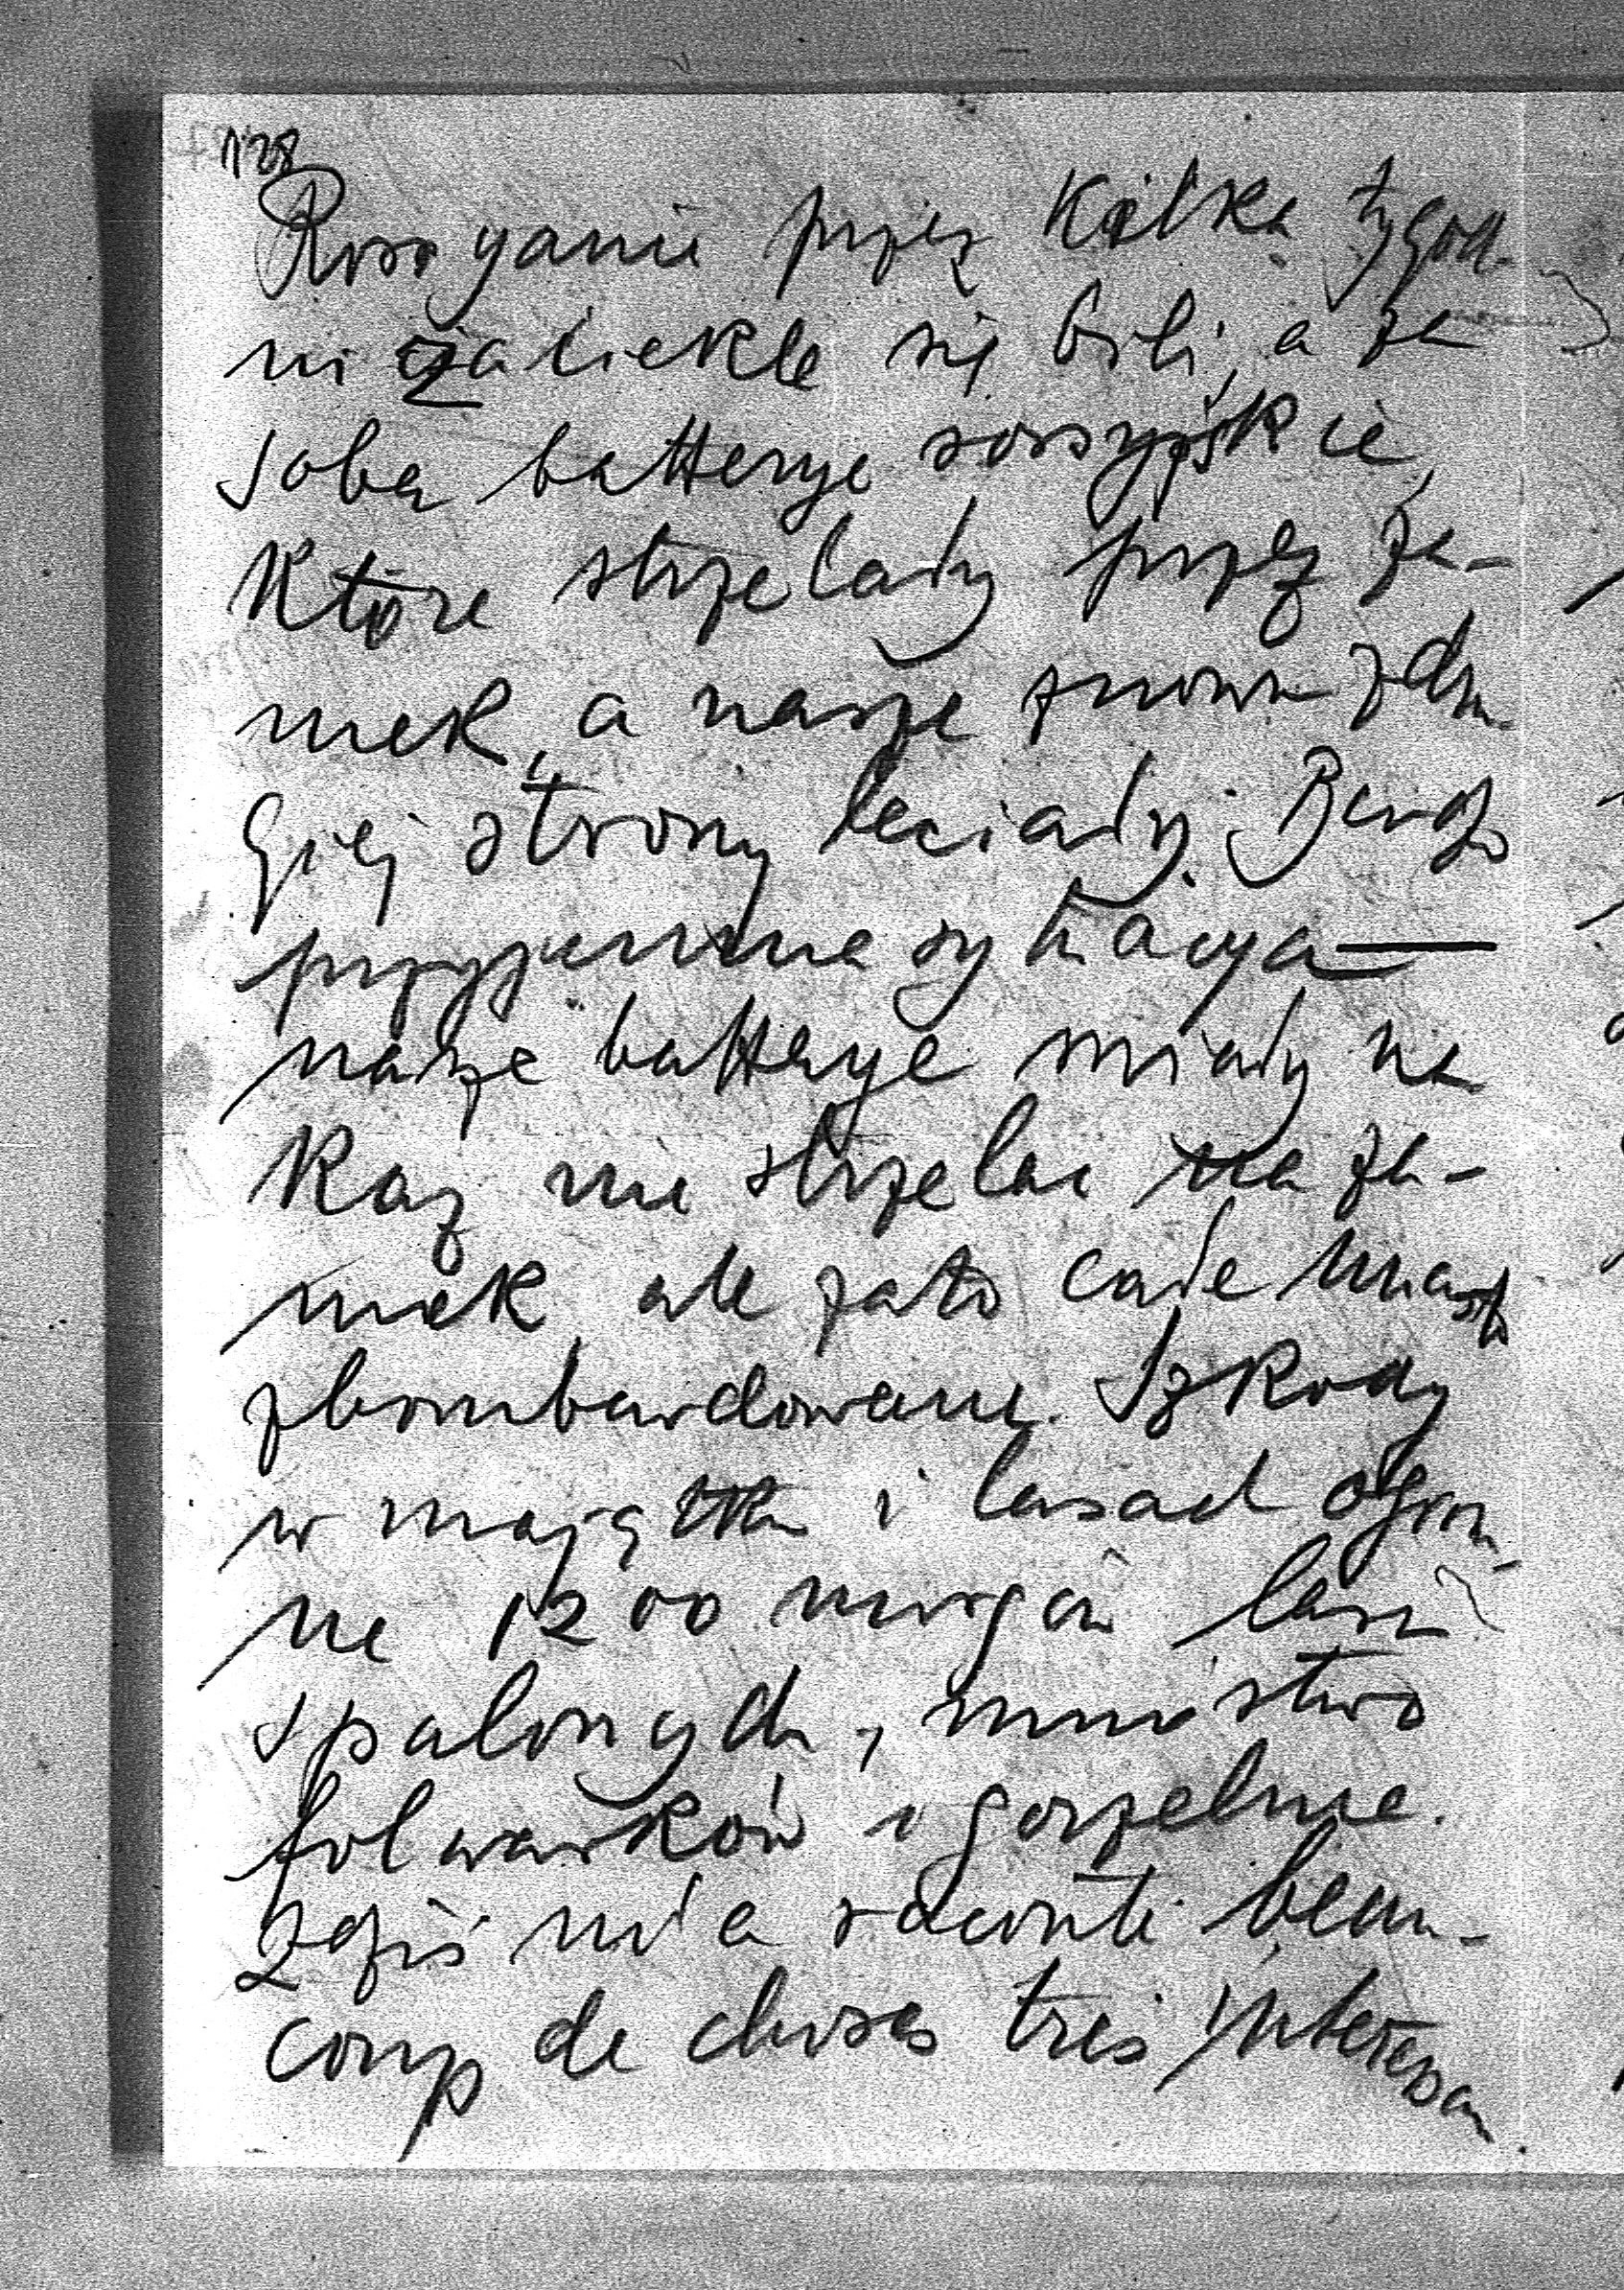 128
Rossyanie przez kilka tygod-
ni zaciekle się bili, a za
sobą batterye rossyjskie,
które strzelały przez za-
mek, a nasze znowu z dru
giej strony leciały. Bardzo
przyjemna sytuacya —
nasze batterye miały na
kaz nie strzelać na za-
mek, ale zato całe miasto
zbombardowane. Szkody
w majątku i lasach ogrom-
ne 1200 morgów lasu
spalonych, mnóstwo
folwarków i gorzelnie.
Zdziś m'a raconté beau-
coup de choses très interessan